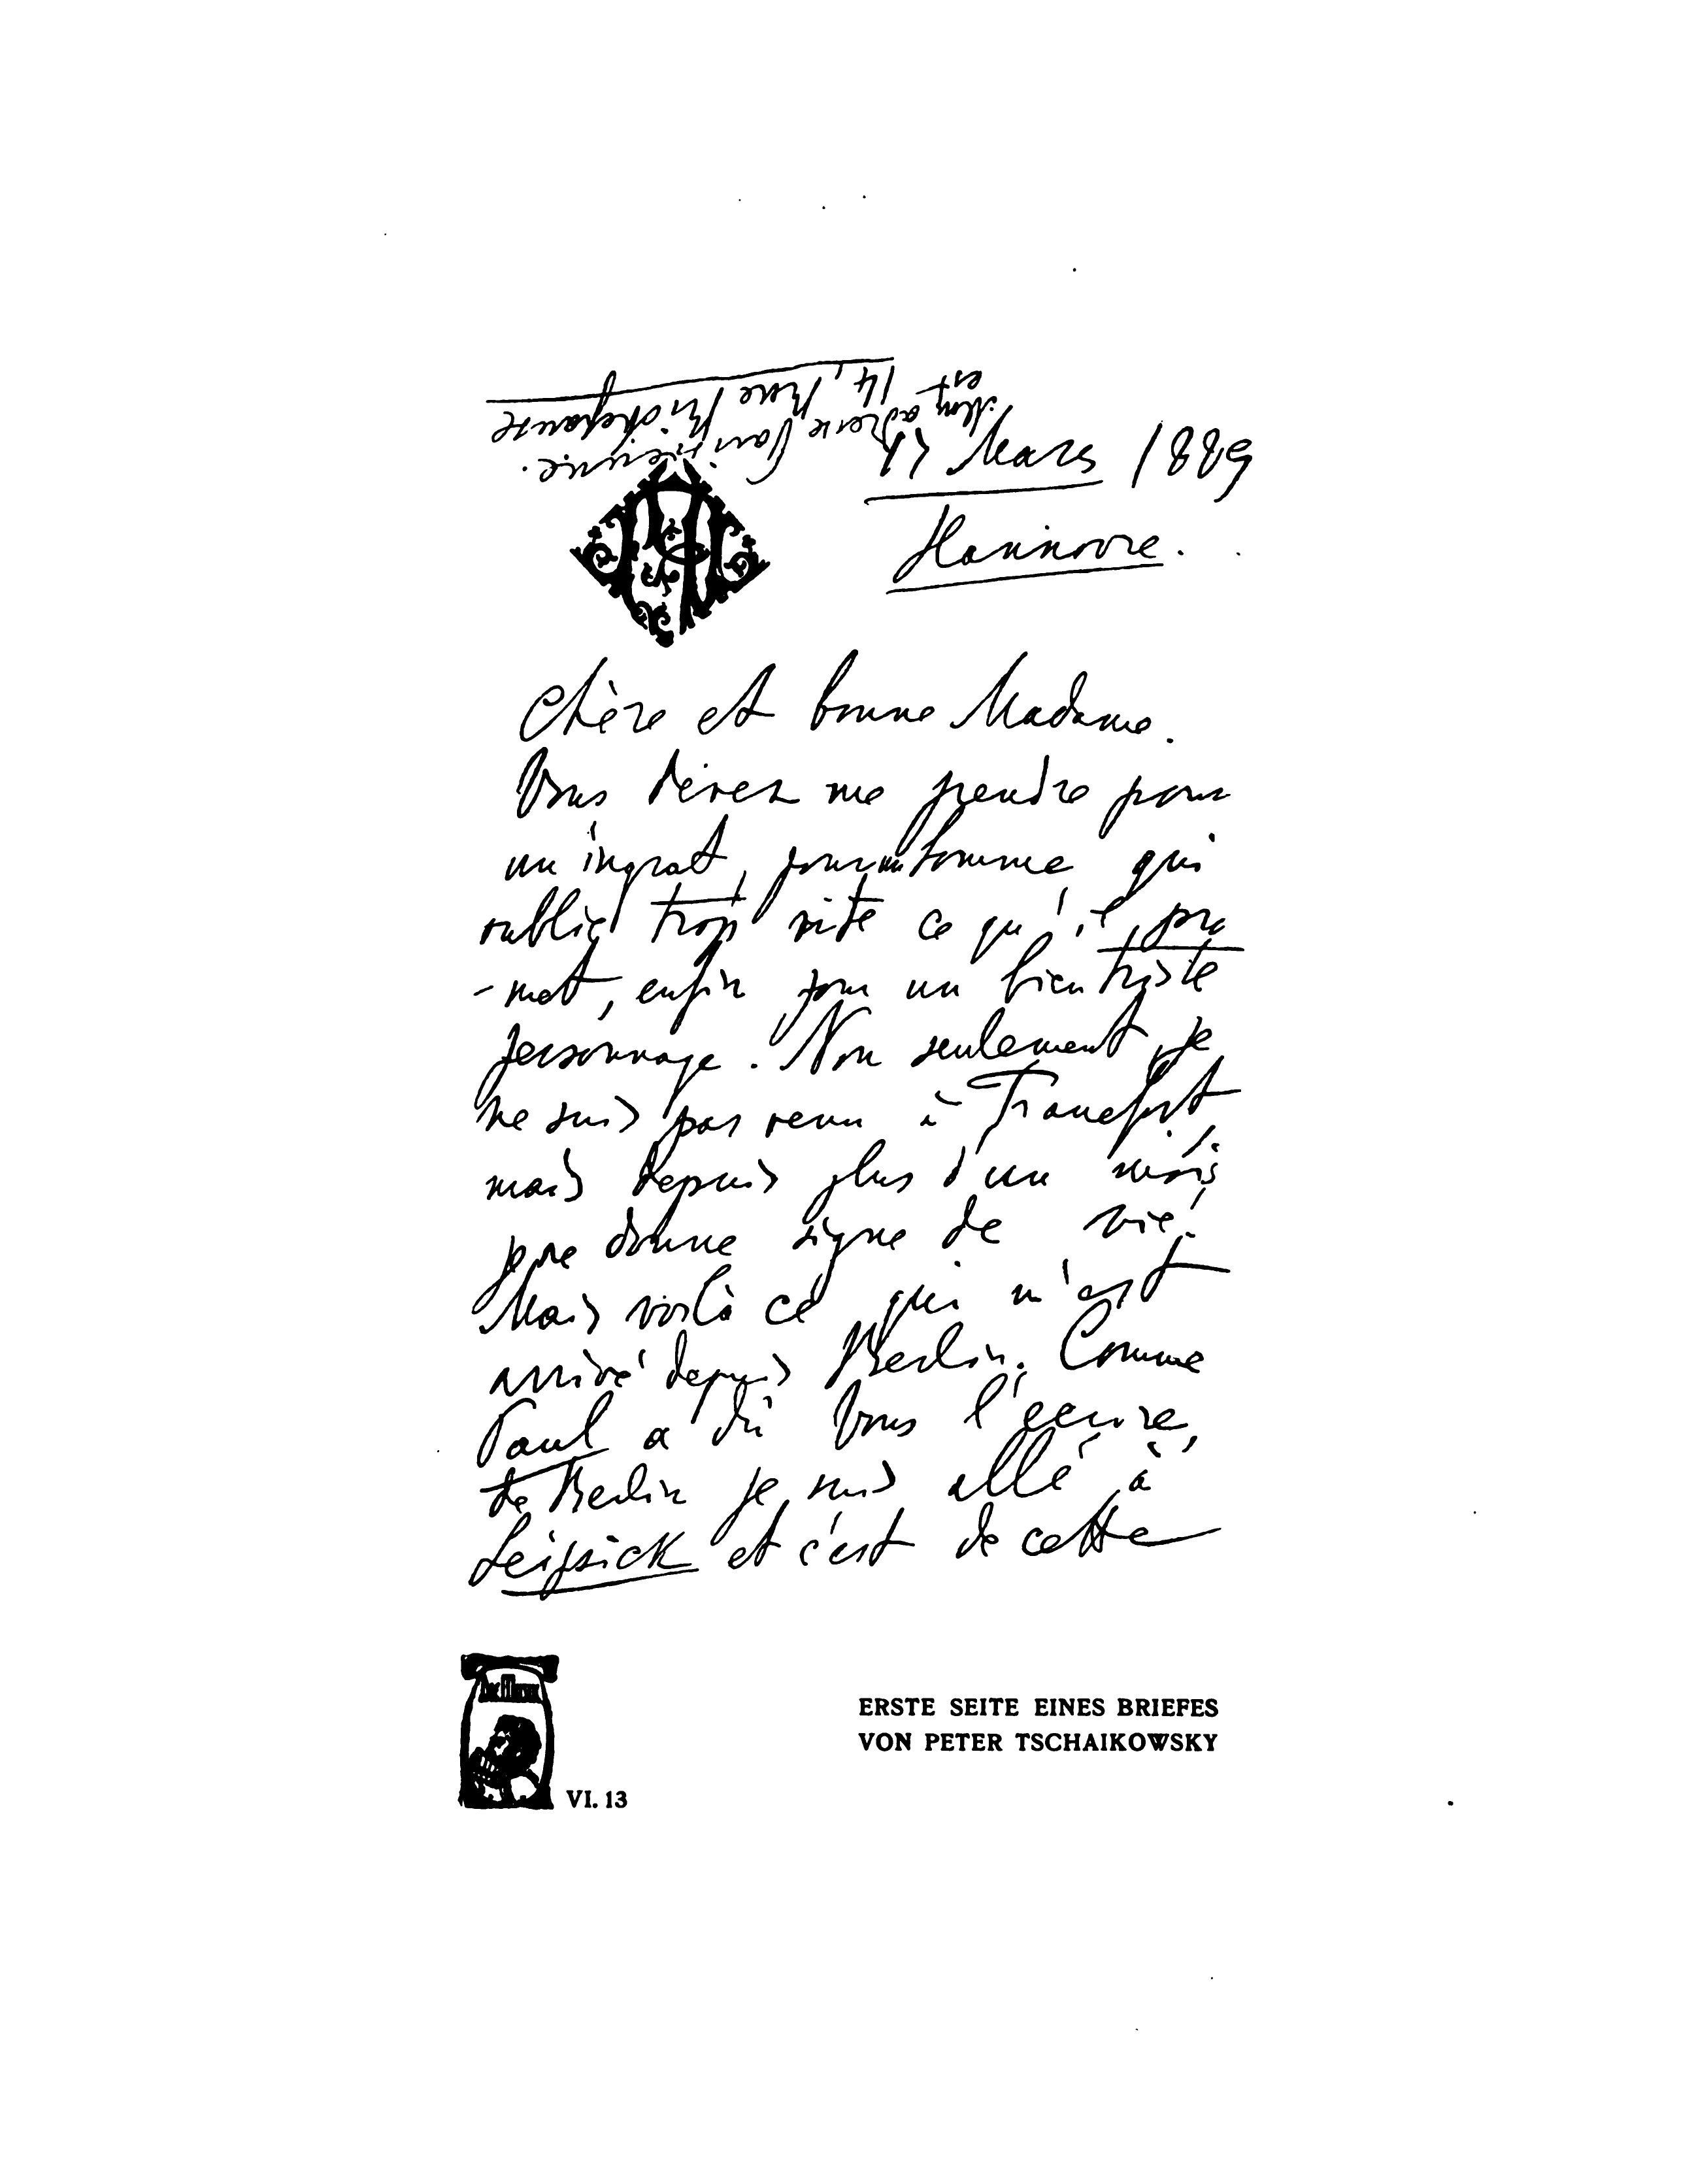 Mon adresse Parisienne.
est 14, Rue Richepanse
17 Mars 1889
Hannovre.
Chère et bonne Madame.
Vous devez me prendre pour
un ingrat, pour un homme qui
oublie trop vite ce qu'il pro
-met, enfin pour un bien triste
personnage. Non seulement je
ne suis pas venu à Francfort,
mais depuis plus d'un mois
je ne donne signe de vie!
Mais voilà ce qui m'est
arrivé depuis Berlin. Comme
Paul a dû Vous l'écrire,
de Berlin je suis allé à
Leipsick et c'est de cette
DIE MUSIK
VI. 13
ERSTE SEITE EINES BRIEFES
VON PETER TSCHAIKOWSKY